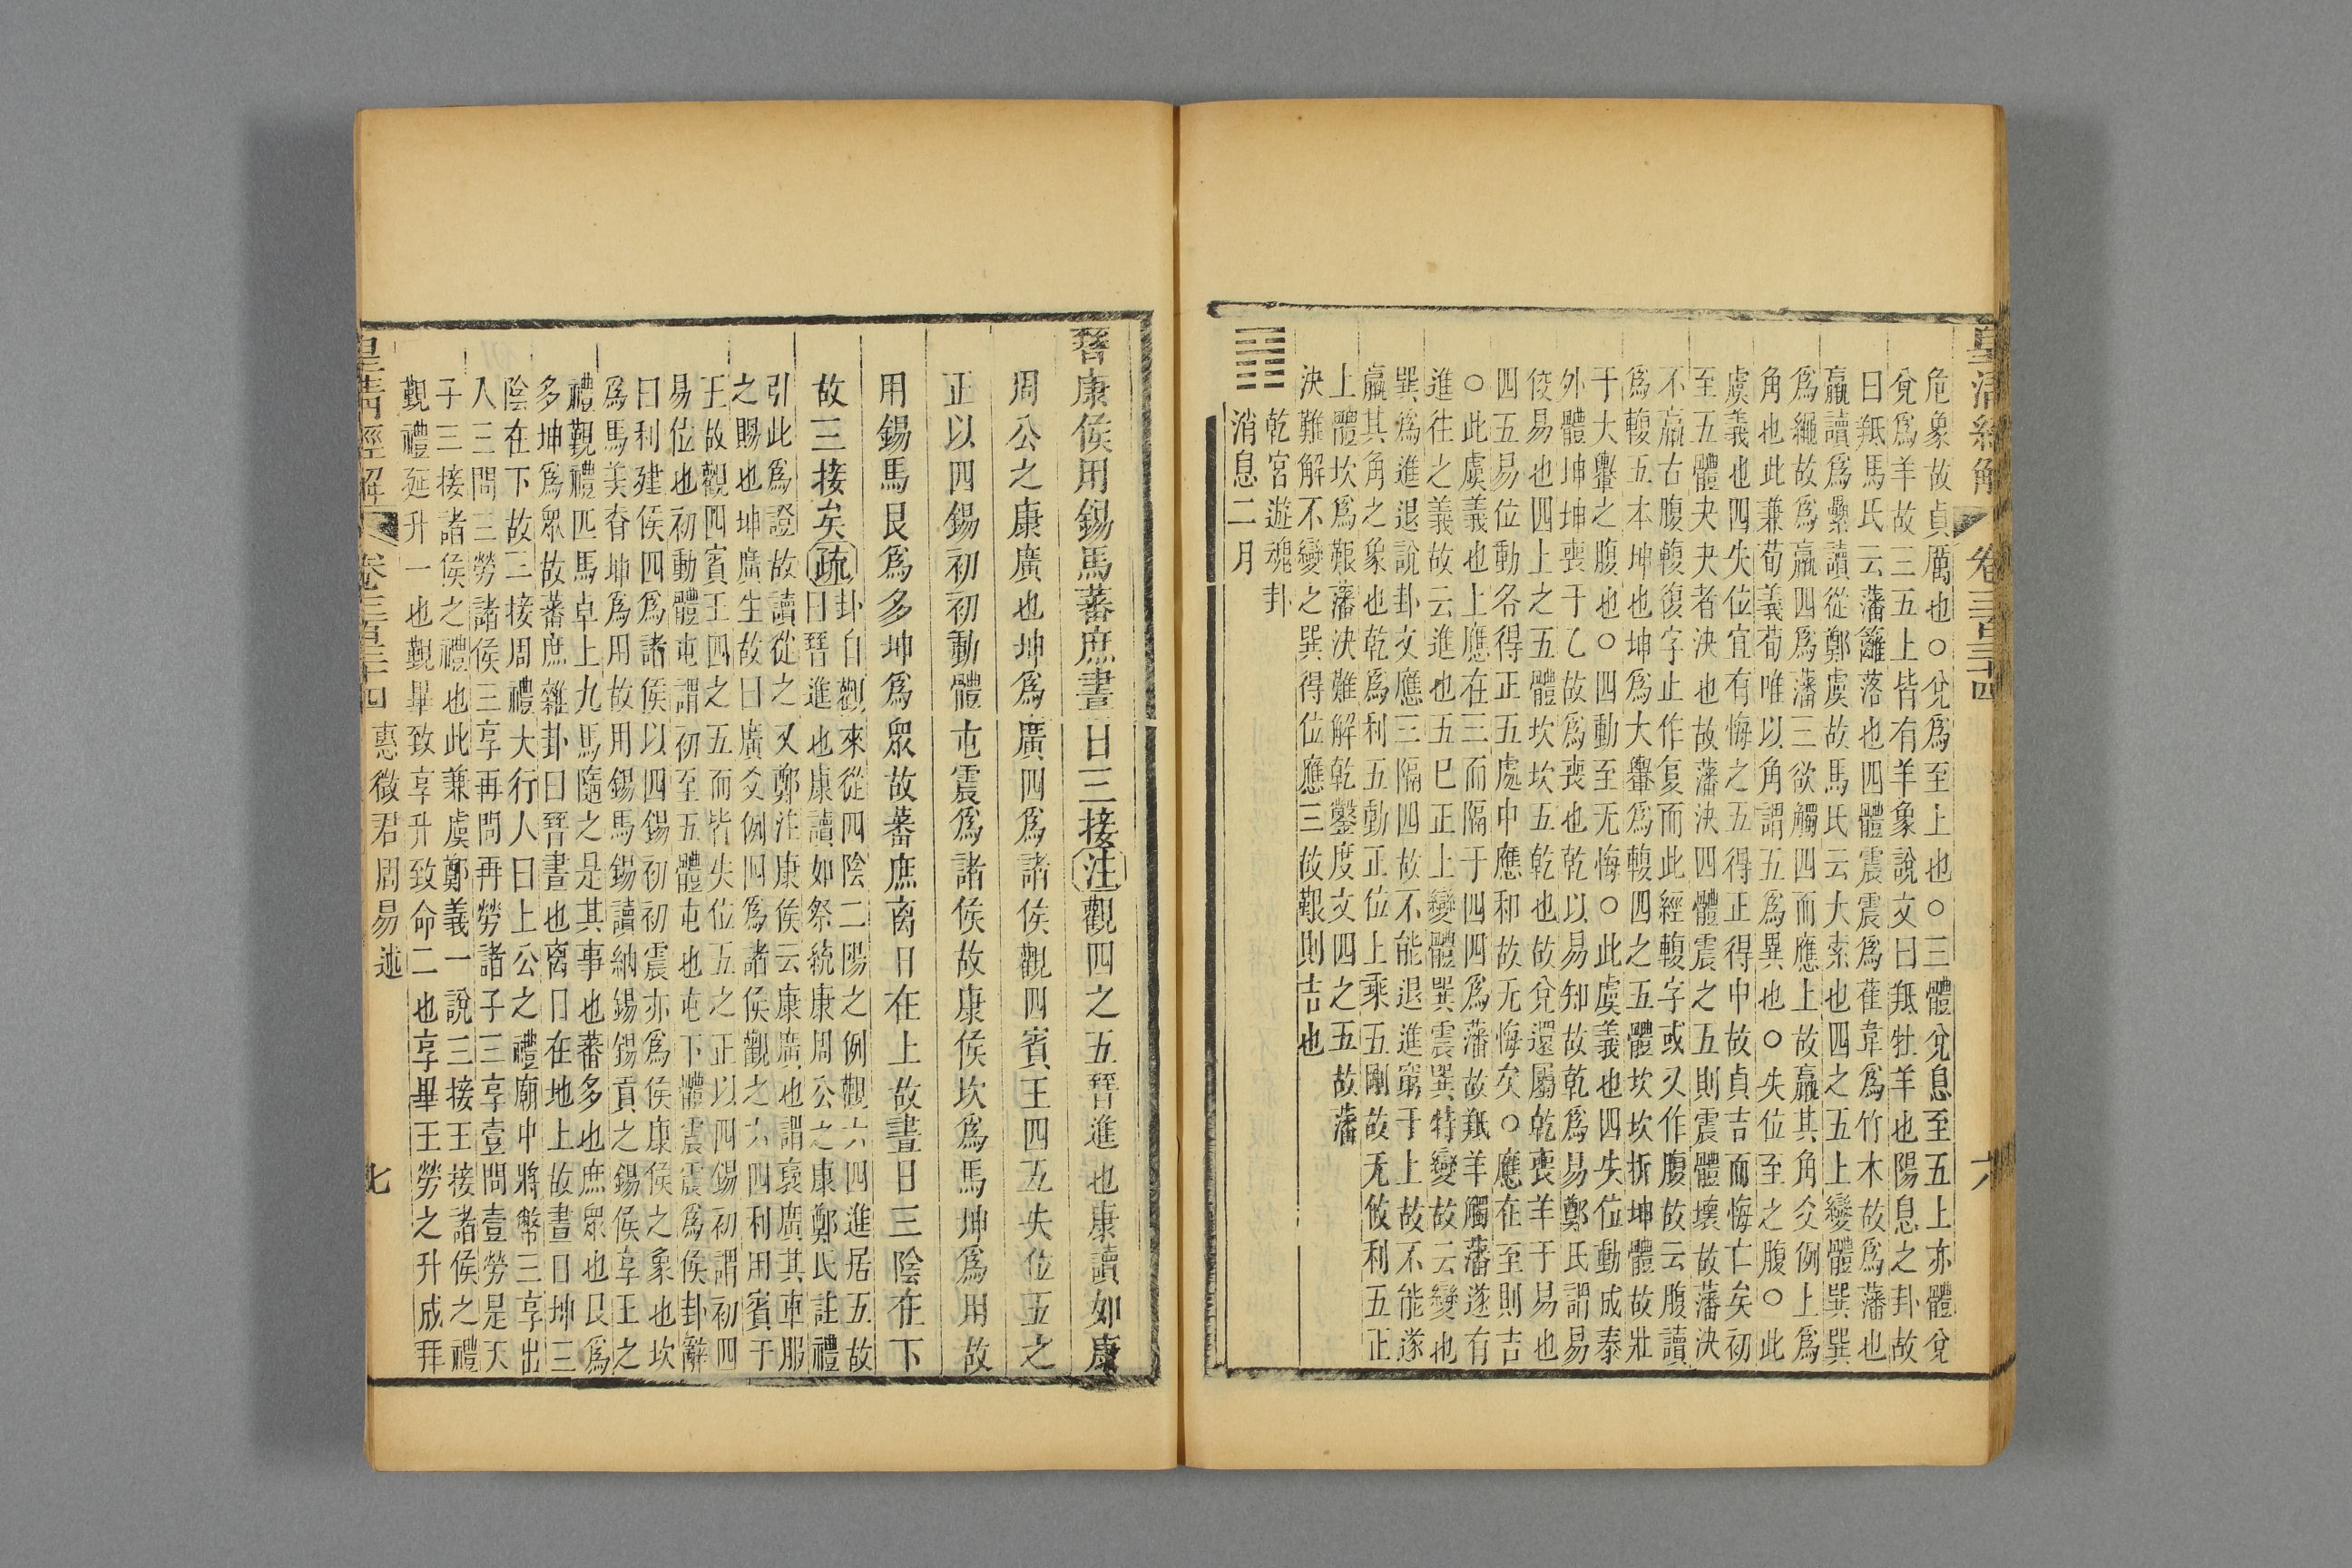 皇清經解 卷三百三十四 六
危象故貞厲也○兌爲至上也○三體兌息至五上亦體兌
兌爲羊故三五上皆有羊象說文曰羝牡羊也陽息之卦故
曰羝馬氏云藩籬落也四體震震爲萑葦爲竹木故爲藩也
羸讀爲纍讀從鄭虞故馬氏云大索也四之五上變體巽巽
爲繩故爲羸四爲藩三欲觸四而應上故羸其角爻例上爲
角也此兼荀義荀唯以角謂五爲異也○失位至之腹○此
虞義也四失位宜有悔之五得正得中故貞吉而悔亡矣初
至五體夬夬者決也故藩決四體震之五則震體壞故藩決
不羸古腹輹復字止作复而此經輹字或又作腹故云腹讀
爲輹五本坤也坤爲大轝爲輹四之五體坎坎折坤體故壯
于大轝之腹也○四動至无悔○此虞義也四失位動成泰
外體坤坤喪于乙故爲喪也乾以易知故乾爲易鄭氏謂易
佼易也四上之五體坎坎五乾也故兌還屬乾喪羊于易也
四五易位動各得正五處中應和故无悔矣○應在至則吉
○此虞義也上應在三而隔于四四爲藩故羝羊觸藩遂有
進往之義故云進也五巳正上變體巽震巽特變故云變也
巽爲進退說卦文應三隔四故不能退進窮于上故不能遂
羸其角之象也乾爲利五動正位上乘五剛故无攸利五正
上體坎爲艱藩決難解乾鑿度文四之五故藩
決難解不變之巽得位應三故艱則吉也
乾宮遊魂卦
消息二月
晉康侯用錫馬蕃庶晝日三接注觀四之五晉進也康讀如康
周公之康廣也坤爲廣四爲諸侯觀四賓王四五失位五之
正以四錫初初動體屯震爲諸侯故康侯坎爲馬坤爲用故
用錫馬艮爲多坤爲眾故蕃庶离日在上故晝日三陰在下
故三接矣疏卦自觀來從四陰二陽之例觀六四進居五故
曰晉進也康讀如祭統康周公之康鄭氏註禮
引此爲證故讀從之又鄭注康侯云康廣也謂褒廣其車服
之賜也坤廣生故曰廣爻例四爲諸侯觀之六四利用賓于
王故觀四賓王四之五而皆失位五之正以四錫初謂初四
易位也初動體屯謂初至五體屯也屯下體震震爲侯卦辭
曰利建侯四爲諸侯以四錫初初震亦爲侯康侯之象也坎
爲馬美脊坤爲用故用錫馬錫讀納錫錫貢之錫侯享王之
禮覲禮匹馬卓上九馬隨之是其事也蕃多也庶眾也艮爲
多坤爲眾故蕃庶雜卦曰晉晝也离日在地上故晝日坤三
陰在下故三接周禮大行人曰上公之禮廟中將幣三享出
入三問三勞諸侯三享再問再勞諸子三享壹問壹勞是天
子三接諸侯之禮也此兼虞鄭義一說三接王接諸侯之禮
覲禮延升一也覲畢致享升致命二也享畢王勞之升成拜
皇清經解 卷三百三十四 惠徵君周易述 七